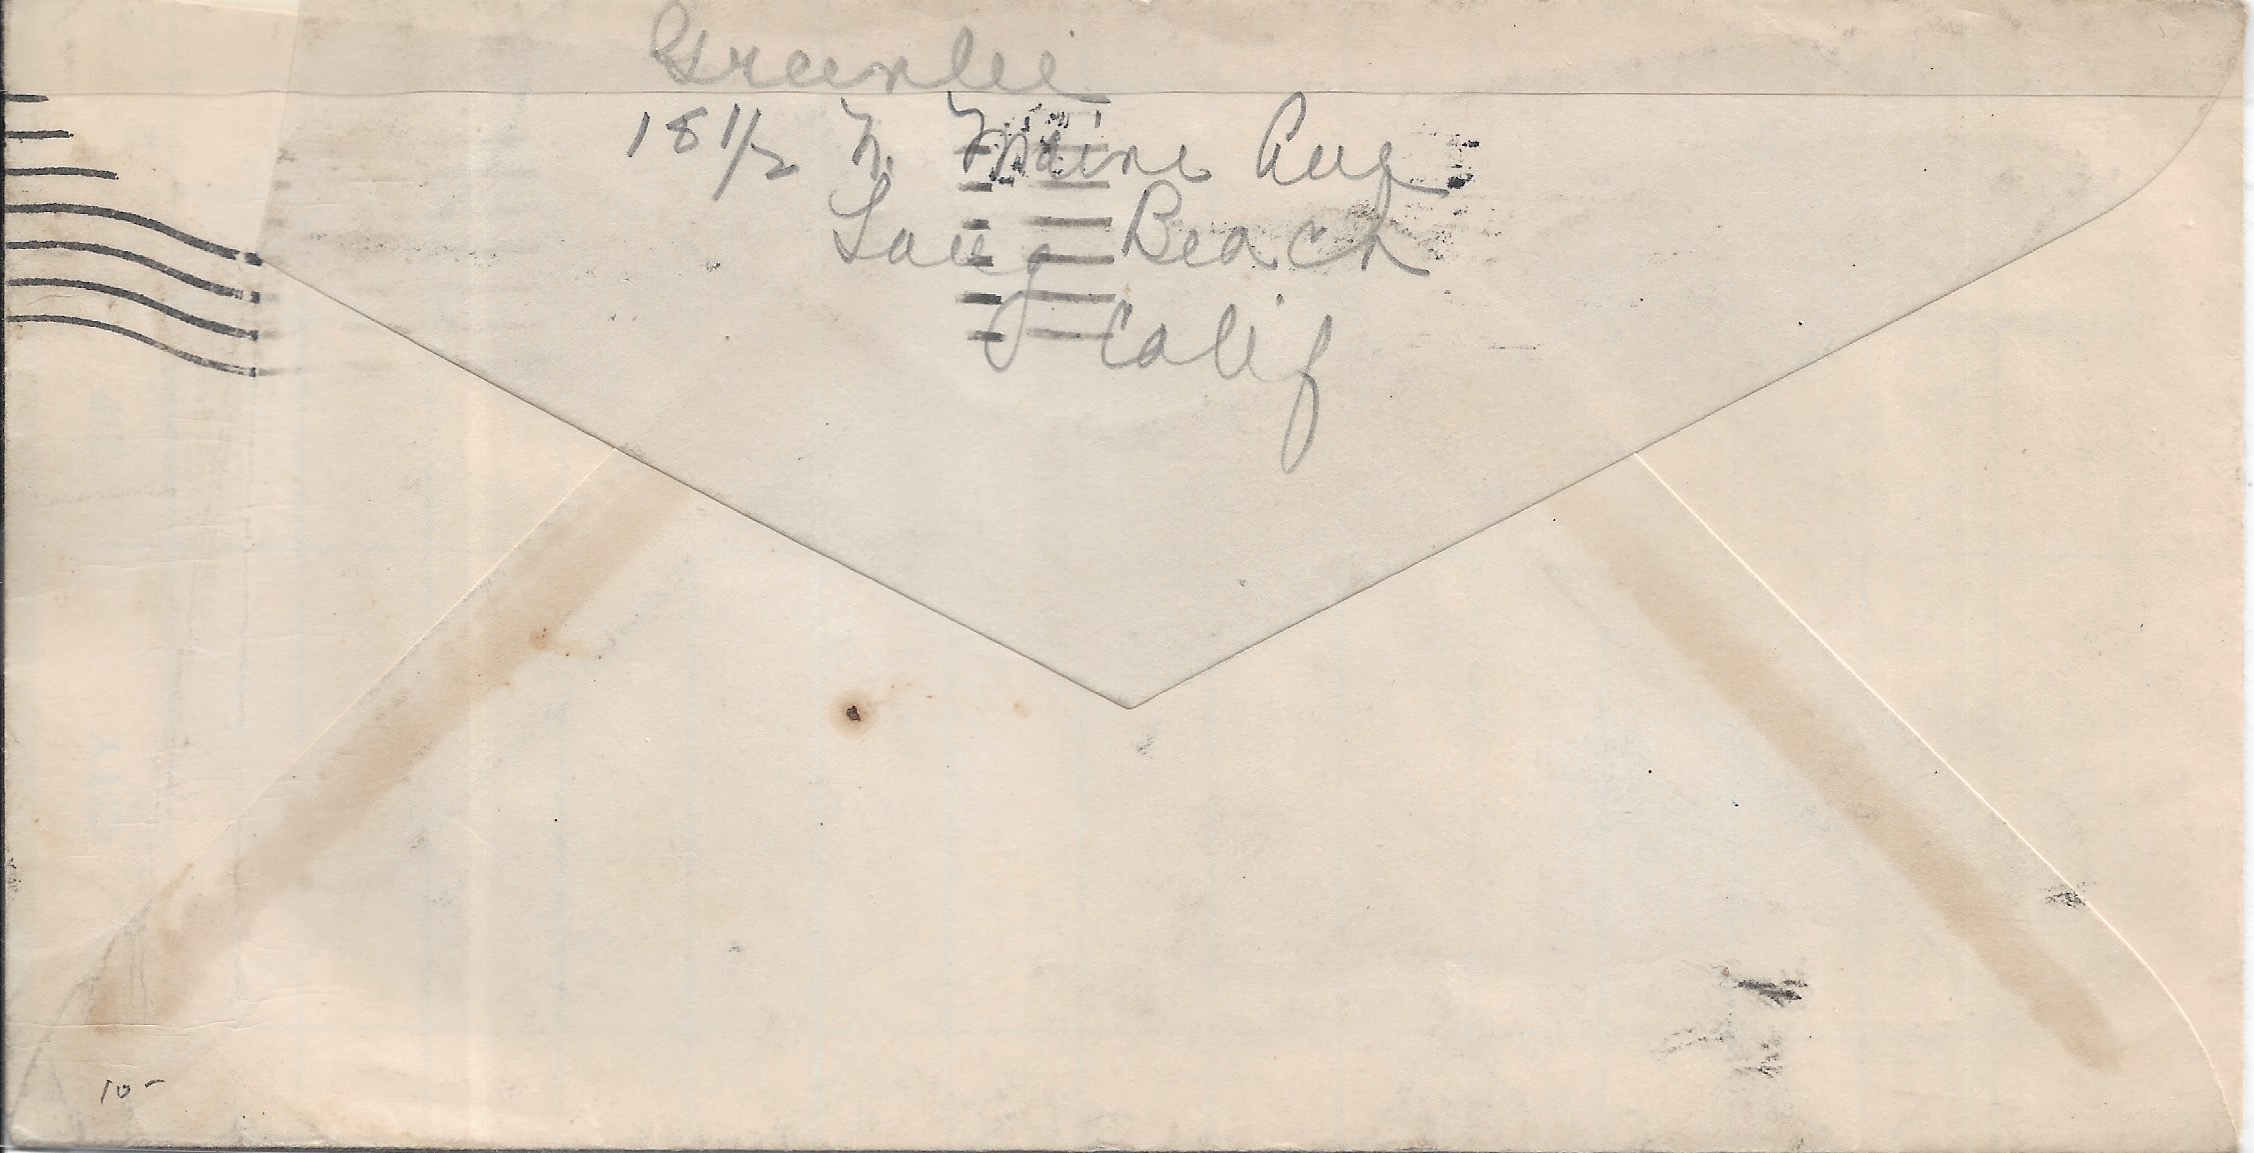 Greenlee
18 1/2 N. Maine Ave
Long Beach
Calif
10-